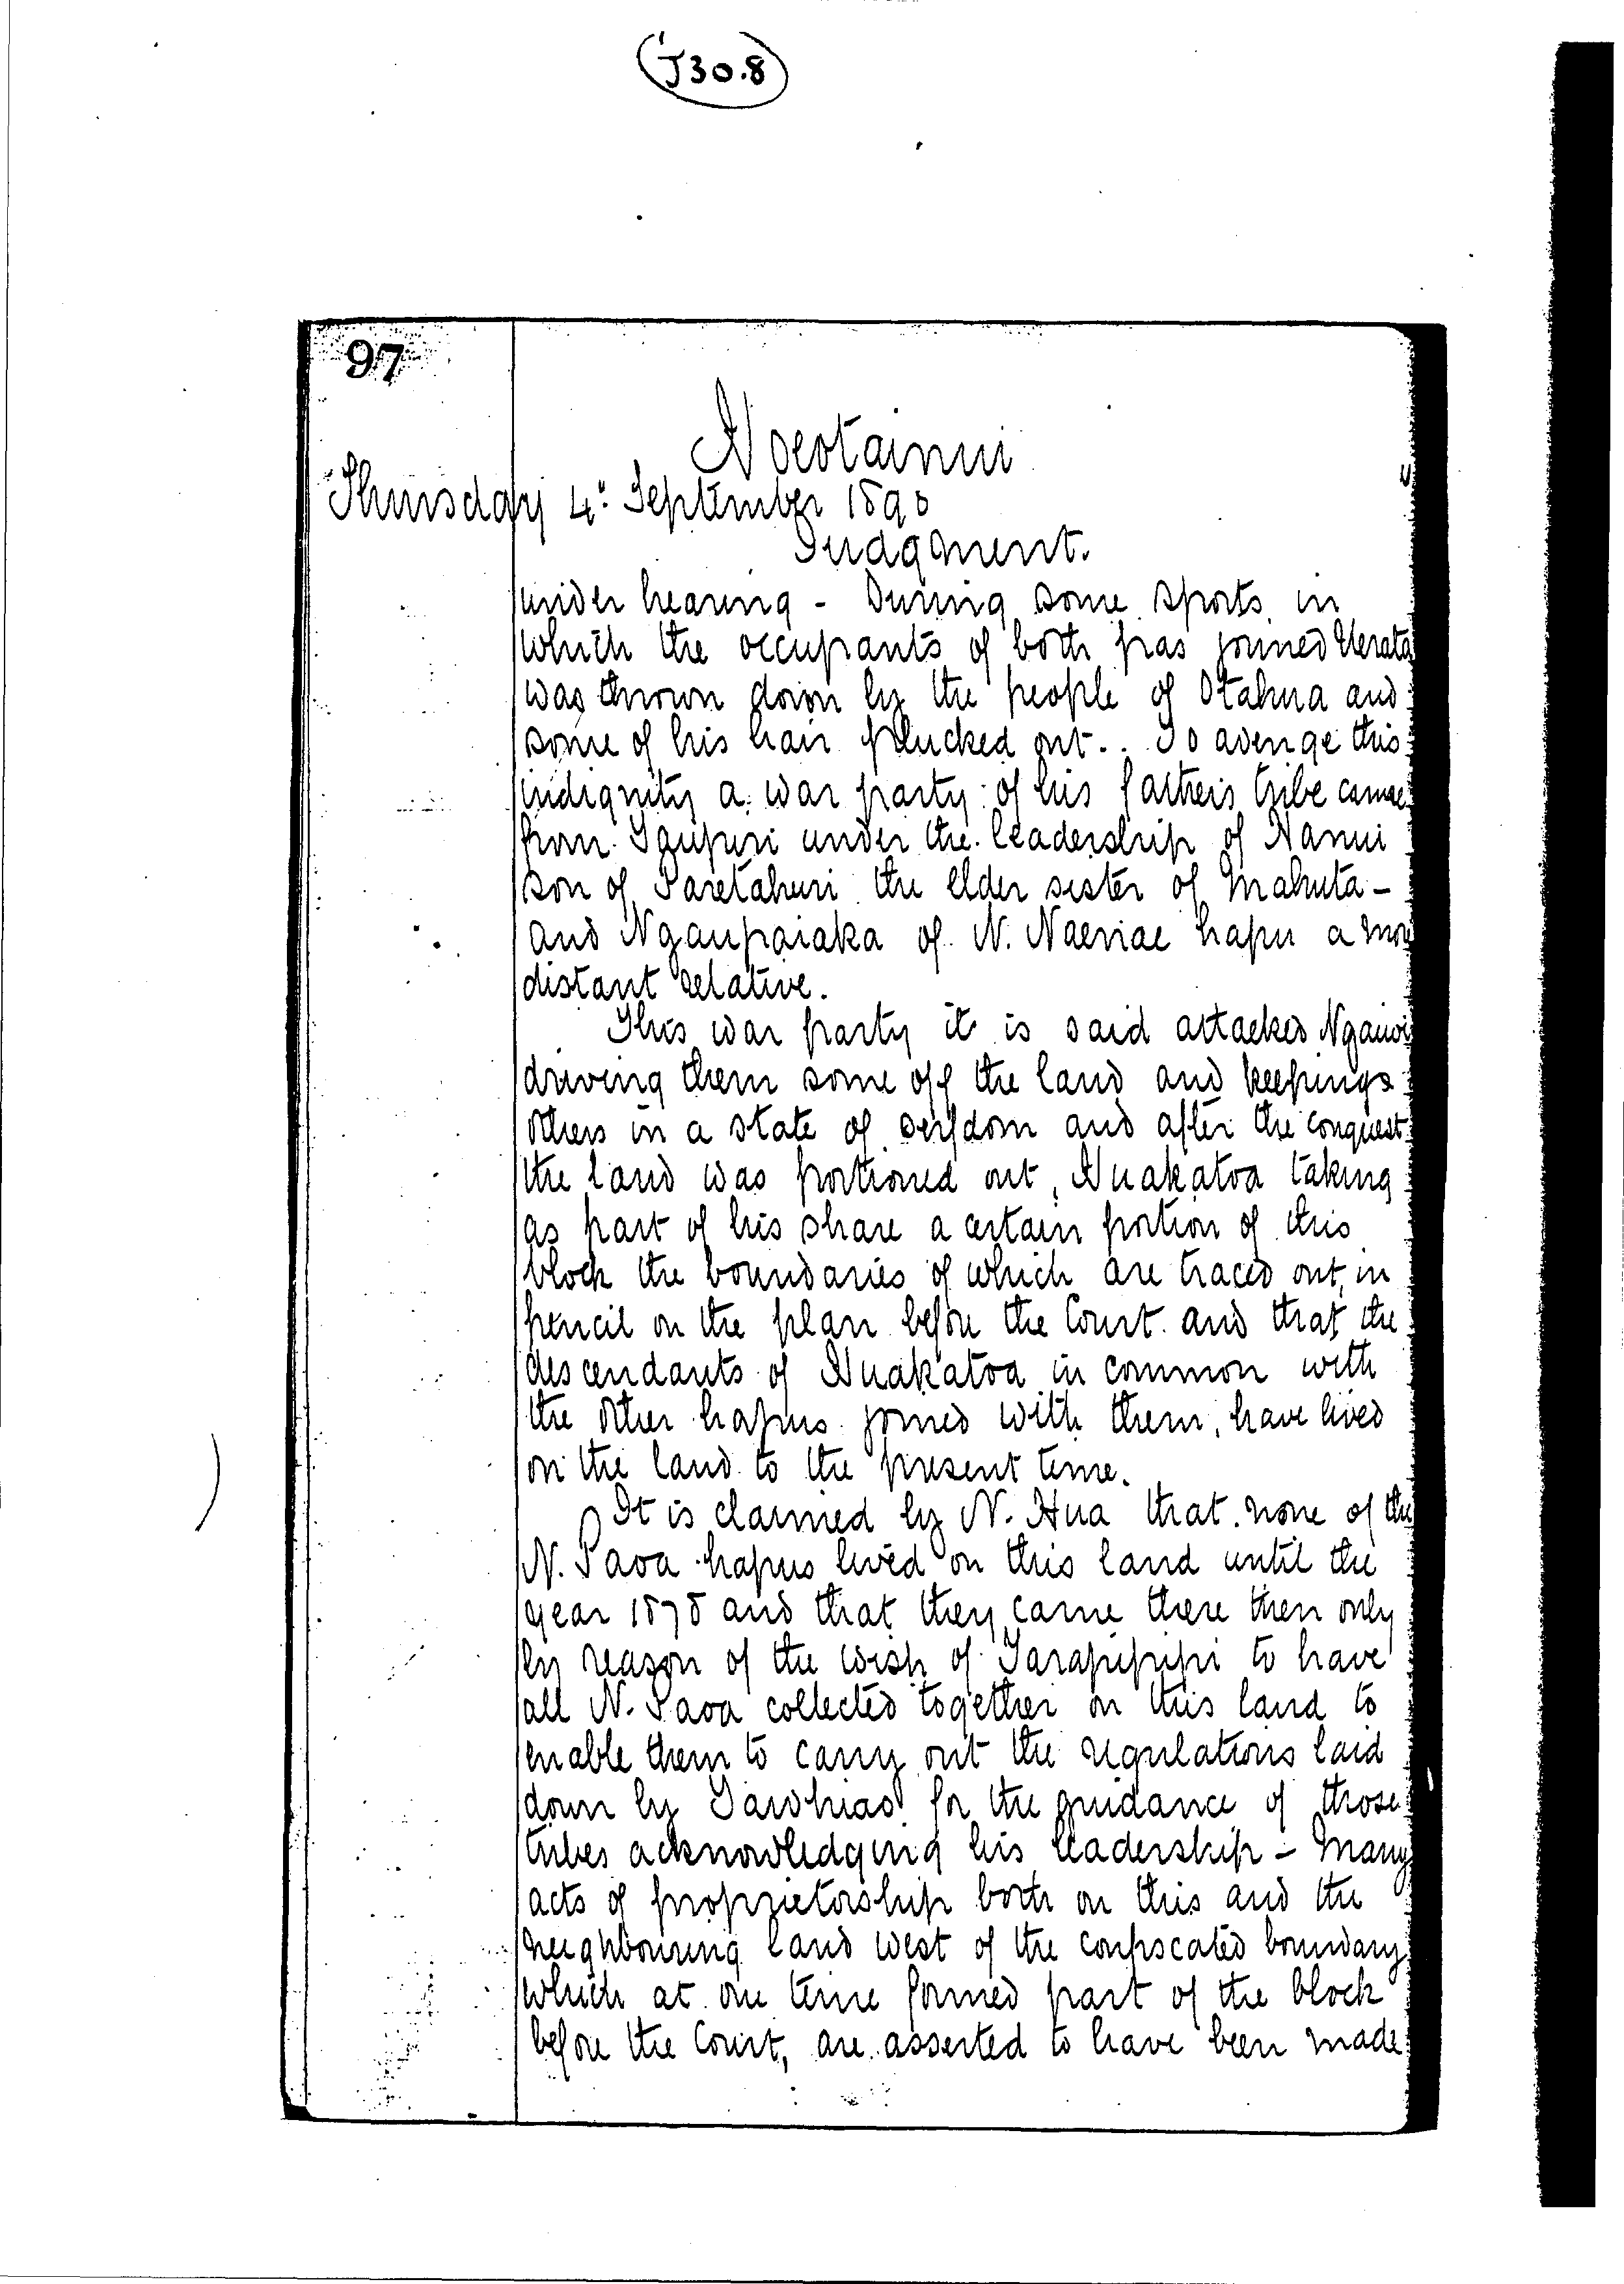 J30.8
97
Hoeotainui
Thursday 4: September 1890
Judgment.
under hearing - During some sports in
which the occupants of both pas joined Werata
was thrown down by the people of Otahua and
some of his hair plucked out. . To avenge this
indignity a war party of his fathers tribe came
from Taupiri under the leadership of Nanui
son of Paretahuri the elder sister of Mahuta -
and Ngauparaka of N. Naeniae hapu a more
distant relative.
This war party it is said attacked Ngawi
driving them some off the land and keepings
others in a state of serfdom and after the conquest
the land was portioned out, Huakatoa taking
as part of his share a certain portion of this
block the boundaries of which are traced out, in
pencil on the plan before the Court. and that the
descendants of Huakatoa in common with
the other hapus joined with them, have lived
on the land to the present time.
It is claimed by N. Hua that none of the
N. Paoa hapus lived on this land until the
year 1878 and that they came there then only
by reason of the wish of Tarapipipi to have
all N. Paoa collected together on this land to
enable them to carry out the regulations laid
down by Tawhiao for the guidance of those
tribes acknowledging his leadership - Many
acts of proprietorship both on this and the
neighbouring land west of the confiscated boundary
which at one time formed part of the block
before the Court, are asserted to have been made